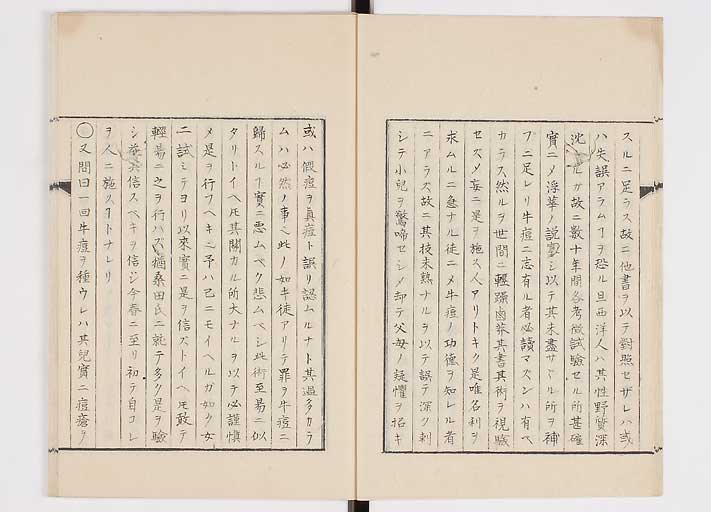 スルニ足ラス故ニ他書ヲ以テ對照セザレハ或
ハ失誤アラムヿヲ恐ル且西洋人ハ其性野質深
沈ナルガ故ニ數十年間各考徴試驗セル所甚確
實ニメ浮華ノ説寡シ以テ其未盡サヾル所ヲ補
フニ足レリ牛痘ニ志有ル者必讀マズンハ有ベ
カラス然ルヲ世間ニ輕躁鹵莽其書其術ヲ視驗
セズメ妄ニ是ヲ施ス人アリトキク是唯名利ヲ
求ムルニ急ナル徒ニメ牛痘ノ功德ヲ知レル者
ニアラズ故ニ其技未熟ナルヲ以テ誤テ深ク刺
シテ小兒ヲ驚啼セシメ却テ父母ノ疑懼ヲ招キ
或ハ假痘ヲ真痘ト誤リ認ムルナト其過多カラ
ムハ必然ノ事也此ノ如キ徒アリテ罪ヲ牛痘ニ
歸スルヿ實ニ悪ムベク悲ムベシ此術至易ニ似
タリトイヘ𪜈其關カル所大ナルヲ以テ必謹慎
メ是ヲ行フヘキ也予ハ已ニモイヘルガ如ク女
ニ試ミテヨリ以來實ニ是ヲ信ズトイヘ𪜈敢テ
輕易ニ之ヲ行ハズ猶桑田氏ニ就テ多ク是ヲ驗
シ益其信スベキヲ信シ今春ニ至リ初テ自コレ
ヲ人ニ施スヿトナレリ
○又問曰一回牛痘ヲ種ウレハ其兒實ニ痘瘡ヲ